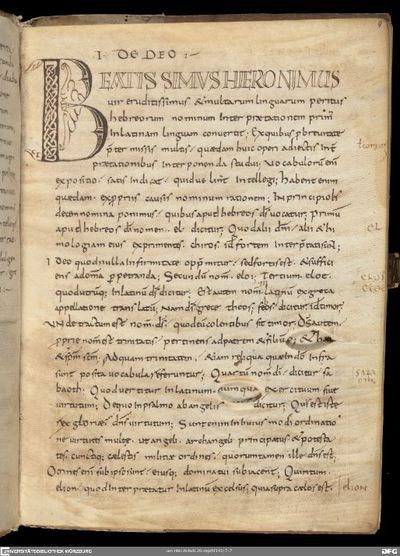 I · DE DEO :-
BEATISSIMUS HIERONIMUS
uir eruditissimus & multarum linguarum peritus
hebreorum nominum Inter prætationem primū
In latinam linguam conuertit; Ex quibus p breuitate
p̄ter missis multis quædam huic operi adiectis Int̄
prætationibus Inter ponenda studui; Uocabulorū eni
expositio satis Indicat quid uelint Intellegi; habent enim
quædam ex propriis causis nominum rationem; In principio
decem nomina ponimus quibus apud hebreos ds̄ uocatur; Primū
apud hebreos dī nomen el dicitur; Quod alii dm̄ alii &hi
mologiam eius exprimentes
I Deo quod nulla Infirmitate opprimitur sed fortis est & suffici
ens ad omnia perpetranda; Secundum nom̄ eloi; Tertium eloe
quod utrūq; In latinū ds̄ dicitur; Est autem nomen latinū ex greca
appellatione translatū; Nam ds̄ grece theos febos dicitur id ē timor
UNde tractum est nom̄ ds̄ quod eū colentibus sit timor; Ds̄ autem
pprie nom̄ est trinitatis pertinens ad patrem & filiū
& sp̄m sc̄m Ad quam trinitatem & iam reliqua quæ in dō Infra
sunt posita uocabula referuntur; Quartū nom̄ dī dicitur sa
baoth Quod uertitur In latinum exercituum siue
uirtutum; De quo In psalmo ab angelis dicitur; Quis est iste
rex gloriæ dn̄s uirtutum; Sunt enim In huius modi ordinatio
ne uirtutes multæ ut angeli archangeli principatus & potesta
tes cunctiq; cælestis militiæ ordines quorum tamen ille dn̄s est
Omnes eni sub ipso sunt eiusq; dominatui subiacent; Quintum
elion quod Inter prætatur In latinū excelsus quia supra cælos est
el
eloi
eloe
saba
oth
elion
UNIVERSITÄTSBIBLIOTHEK WÜRZBURG
DFG